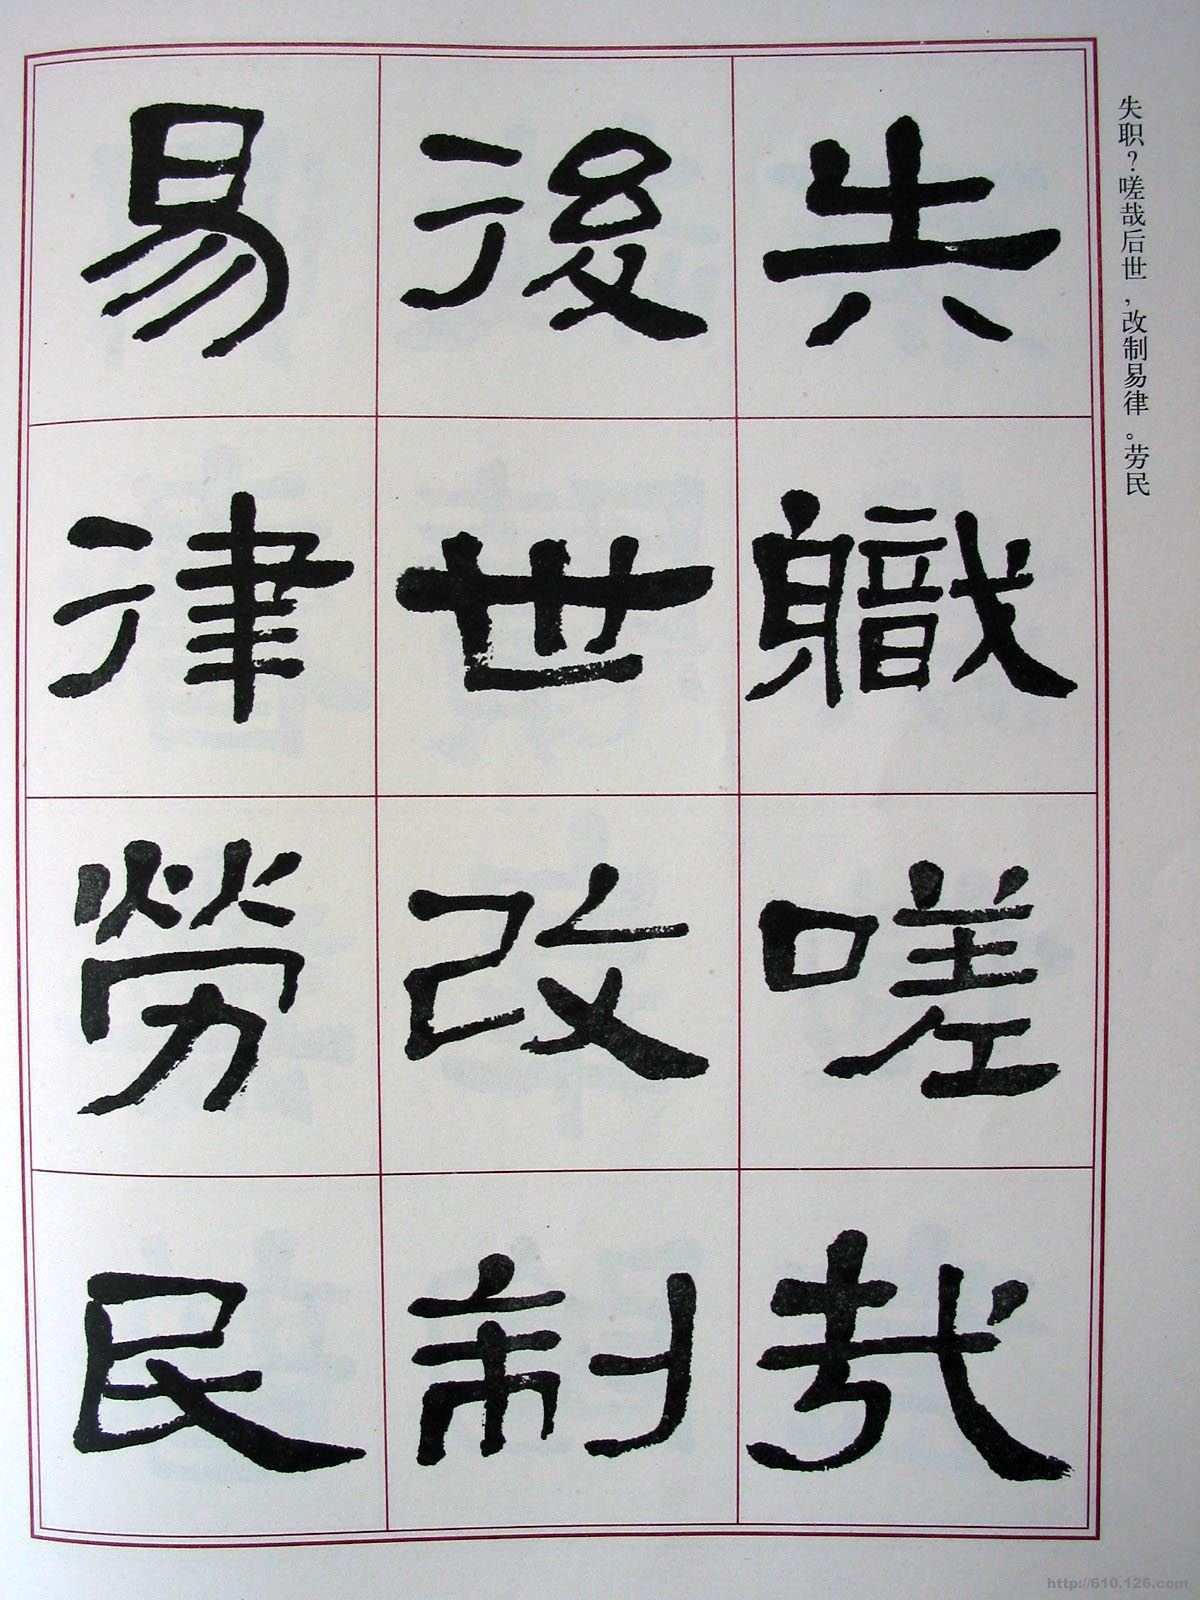 失职？嗟哉后世，改制易律。劳民
失職嗟哉
後世改制
易律勞民
http://610.126.com